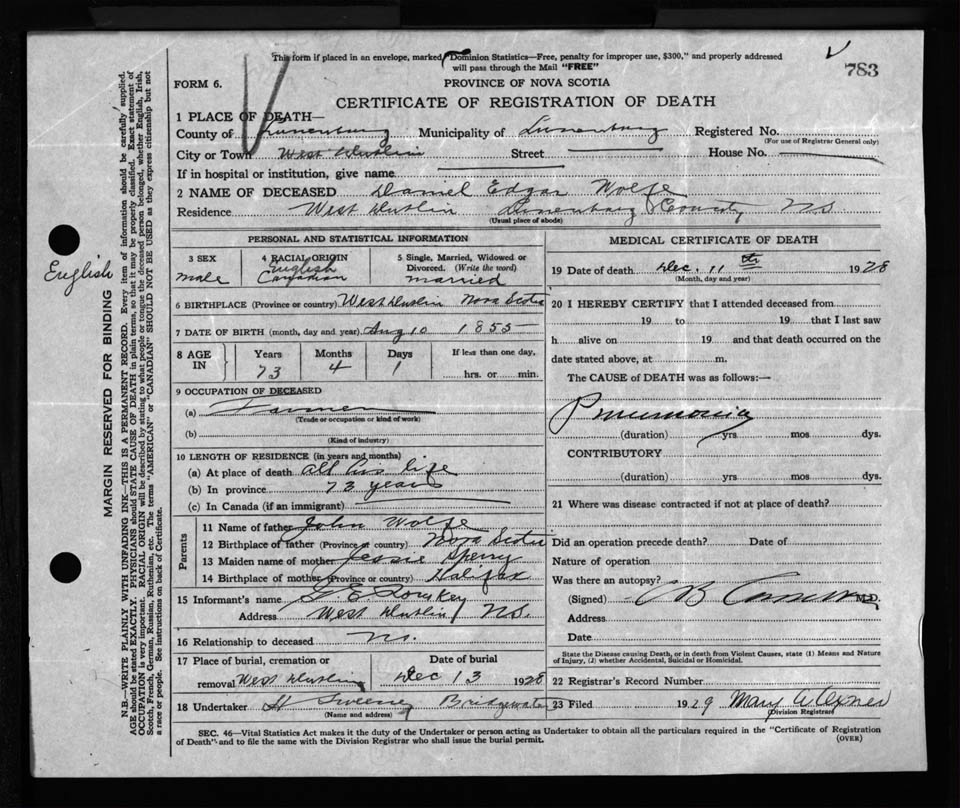 This form if placed in an envelope, marked "Dominion Statistics—Free, penalty for improper use, $300," and properly addressed
will pass through the Mail "FREE"
783
FORM 6.
PROVINCE OF NOVA SCOTIA
CERTIFICATE OF REGISTRATION OF DEATH
1 PLACE OF DEATH—
County of Lunenburg Municipality of Lunenburg Registered No.
(For use of Registrar General only)
City or Town West Dublin Street House No.
If in hospital or institution, give name
2 NAME OF DECEASED Daniel Edgar Wolfe
Residence West Dublin Lunenburg County NS
(Usual place of abode)
PERSONAL AND STATISTICAL INFORMATION
3 SEX
male
4 RACIAL ORIGIN
English
Canadian
5 Single, Married, Widowed or
Divorced. (Write the word)
married
6 BIRTHPLACE (Province or country) West Dublin Nova Scotia
7 DATE OF BIRTH (month, day and year) Aug 10 1855
8 AGE IN
Years Months Days If less than one day,
73 4 1 hrs. or min.
9 OCCUPATION OF DECEASED
(a) Farmer
(Trade or occupation or kind of work)
(b)
(Kind of industry)
10 LENGTH OF RESIDENCE (in years and months)
(a) At place of death all his life
(b) In province 73 years
(c) In Canada (if an immigrant)
Parents
11 Name of father John Wolfe
12 Birthplace of father (Province or country) Nova Scotia
13 Maiden name of mother Jessie Sperry
14 Birthplace of mother (Province or country) Halifax
15 Informant's name
Address West Dublin NS.
16 Relationship to deceased no.
17 Place of burial, cremation or
removal West Dublin
Date of burial
Dec 13 1928
18 Undertaker H Sweeney Bridgewater
(Name and address)
MEDICAL CERTIFICATE OF DEATH
19 Date of death Dec. 11th 1928
(Month, day and year)
20 I HEREBY CERTIFY that I attended deceased from
19 to 19 that I last saw
h alive on 19 and that death occurred on the
date stated above, at m.
The CAUSE of DEATH was as follows:—
Pneumonia
(duration) yrs mos dys.
CONTRIBUTORY
(duration) yrs mos dys.
21 Where was disease contracted if not at place of death?
Did an operation precede death? Date of
Nature of operation
Was there an autopsy?
(Signed) M.D.
Address
Date
State the Disease causing Death, or in death from Violent Causes, state (1) Means and Nature
of Injury, (2) whether Accidental, Suicidal or Homicidal.
22 Registrar's Record Number
23 Filed 1929 Mary
Division Registrar
SEC. 46—Vital Statistics Act makes it the duty of the Undertaker or person acting as Undertaker to obtain all the particulars required in the "Certificate of Registration
of Death"-and to file the same with the Division Registrar who shall issue the burial permit.
(OVER)
English
MARGIN RESERVED FOR BINDING
N.B.—WRITE PLAINLY WITH UNFADING INK—THIS IS A PERMANENT RECORD. Every item of information should be carefully supplied.
AGE should be stated EXACTLY. PHYSICIANS should STATE CAUSE OF DEATH in plain terms, so that it may be properly classified. Exact statement of
OCCUPATION is very important. RACIAL ORIGIN will be described by stating to what people or tongue the deceased person belonged, whether English, Irish,
Scotch, French, German, Russian, Ruthenian, etc. The terms "AMERICAN" or "CANADIAN" SHOULD NOT BE USED as they express citizenship but not
a race or people. See instructions on back of Certificate.